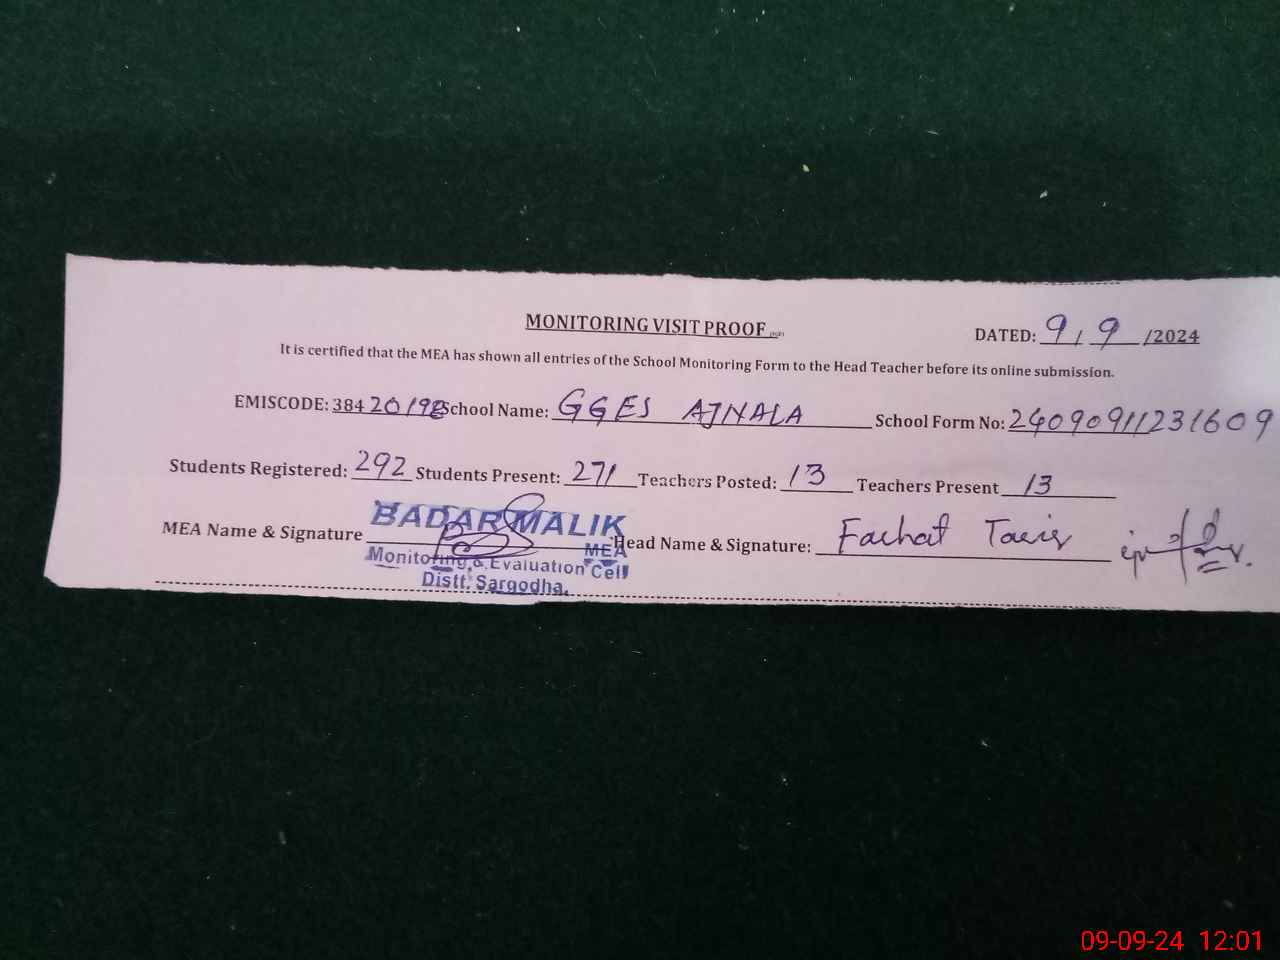 MONITORING VISIT PROOF
DATED: 9/9/2024
It is certified that the MEA has shown all entries of the School Monitoring Form to the Head Teacher before its online submission.
EMISCODE: 38420198 School Name: GGES AJNALA School Form No: 24090911231609
Students Registered: 292 Students Present: 271 Teachers Posted: 13 Teachers Present 13
MEA Name & Signature BADAR MALIK Head Name & Signature: Farhat
MEA
Monitoring & Evaluation Cell
Distt. Sargodha.
09-09-24 12:01